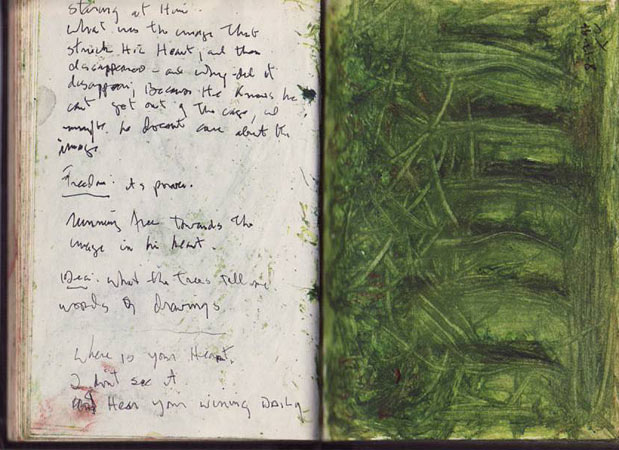 staring at Him.
What was the image That
struck His Heart, and then
disappeared - and why did it
disappear, Because He Knows he
can't get out of the cage, and
he doesn't care about the
image
Freedom: its power.
running free towards the
image in his heart.
Idea: what the trees tell me
words & drawings
Where is your Heart.
I dont see it
Hear your DAILY